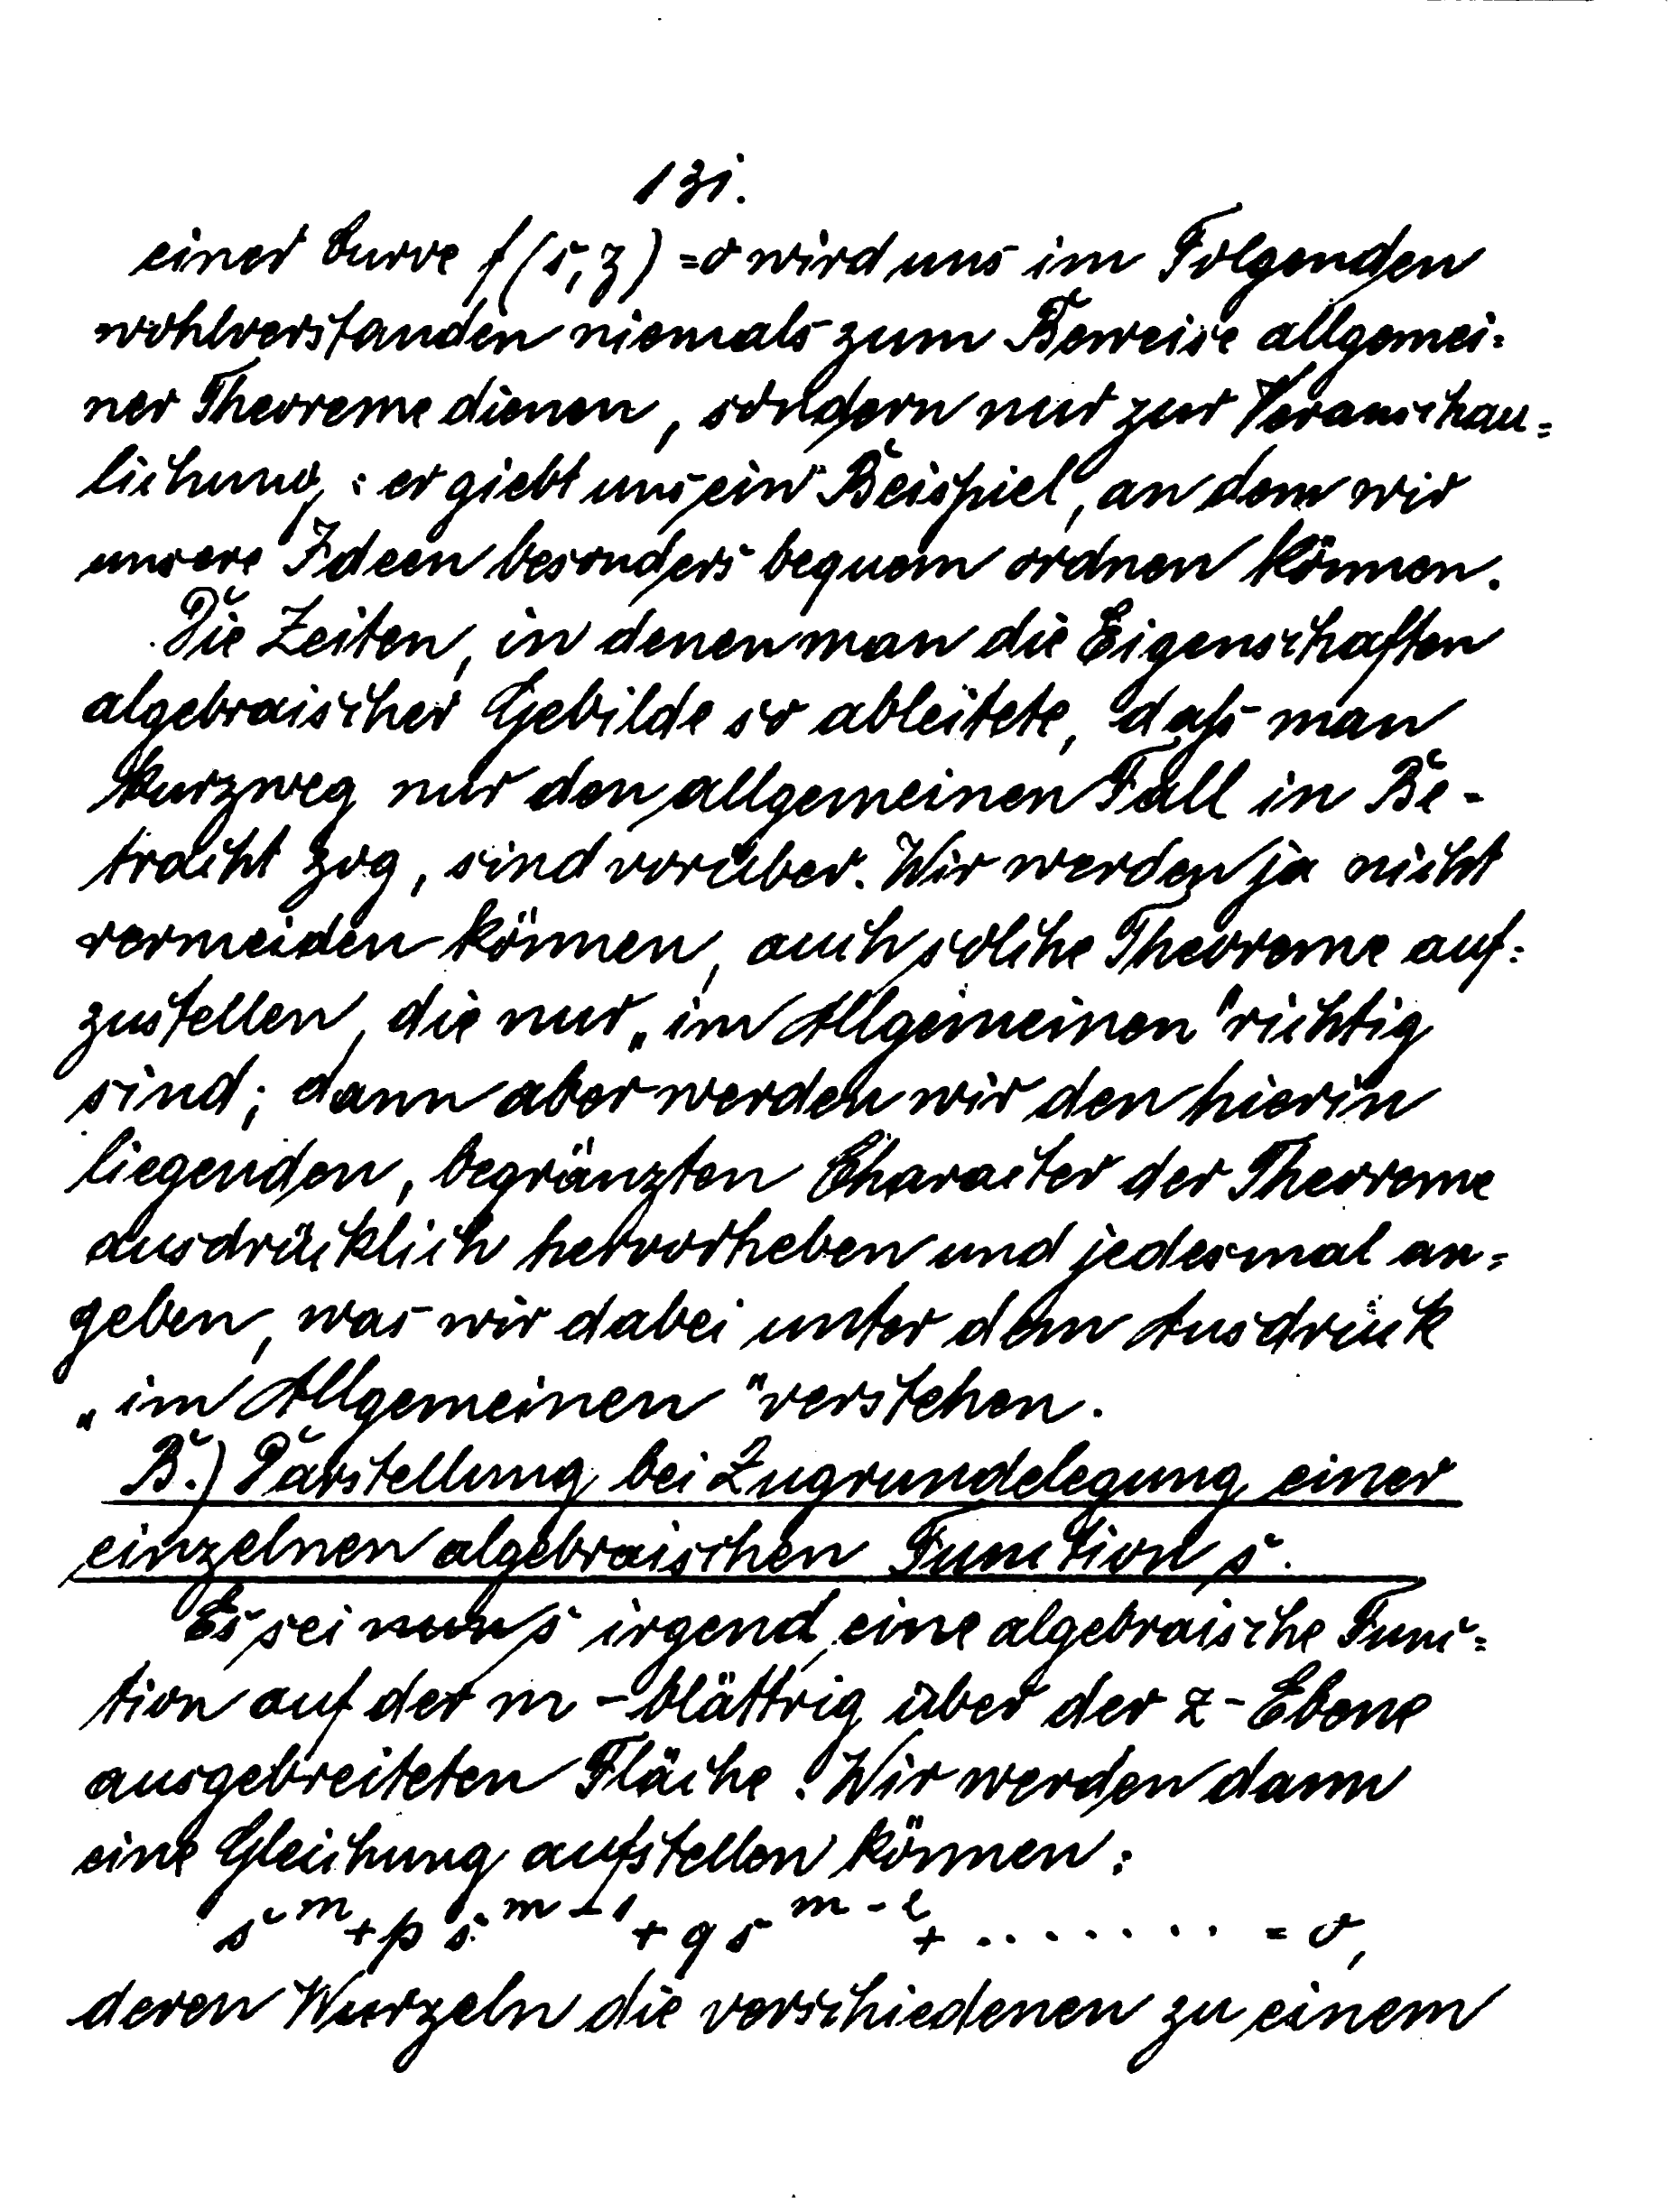 131.
einer Curve f(s,z) = 0 wird uns im Folgenden
wohlverstanden niemals zum Beweise allgemei=
ner Theoreme dienen, sondern nur zur Veranschau=
lichung: er giebt uns ein Beispiel, an dem wir
unsere Ideen besonders bequem ordnen können.
Die Zeiten, in denen man die Eigenschaften
algebraischer Gebilde so ableitete, daß man
kurzweg nur den allgemeinen Fall in Be-
tracht zog, sind vorüber. Wir werden ja nicht
vermeiden können, auch solche Theoreme auf=
zustellen, die nur „im Allgemeinen" richtig
sind; dann aber werden wir den hierin
liegenden, begränzten Character der Theoreme
ausdrücklich hervorheben und jedesmal an=
geben, was wir dabei unter dem Ausdruck
„im Allgemeinen" verstehen.
B.) Darstellung bei Zugrundelegung einer
einzelnen algebraischen Function s.
Es sei nun s irgend eine algebraische Func=
tion auf der m-blättrig über der z-Ebene
ausgebreiteten Fläche. Wir werden dann
eine Gleichung aufstellen können:
s^m + p s^{m-1} + q s^{m-2} + ........ = 0,
deren Wurzeln die verschiedenen zu einem